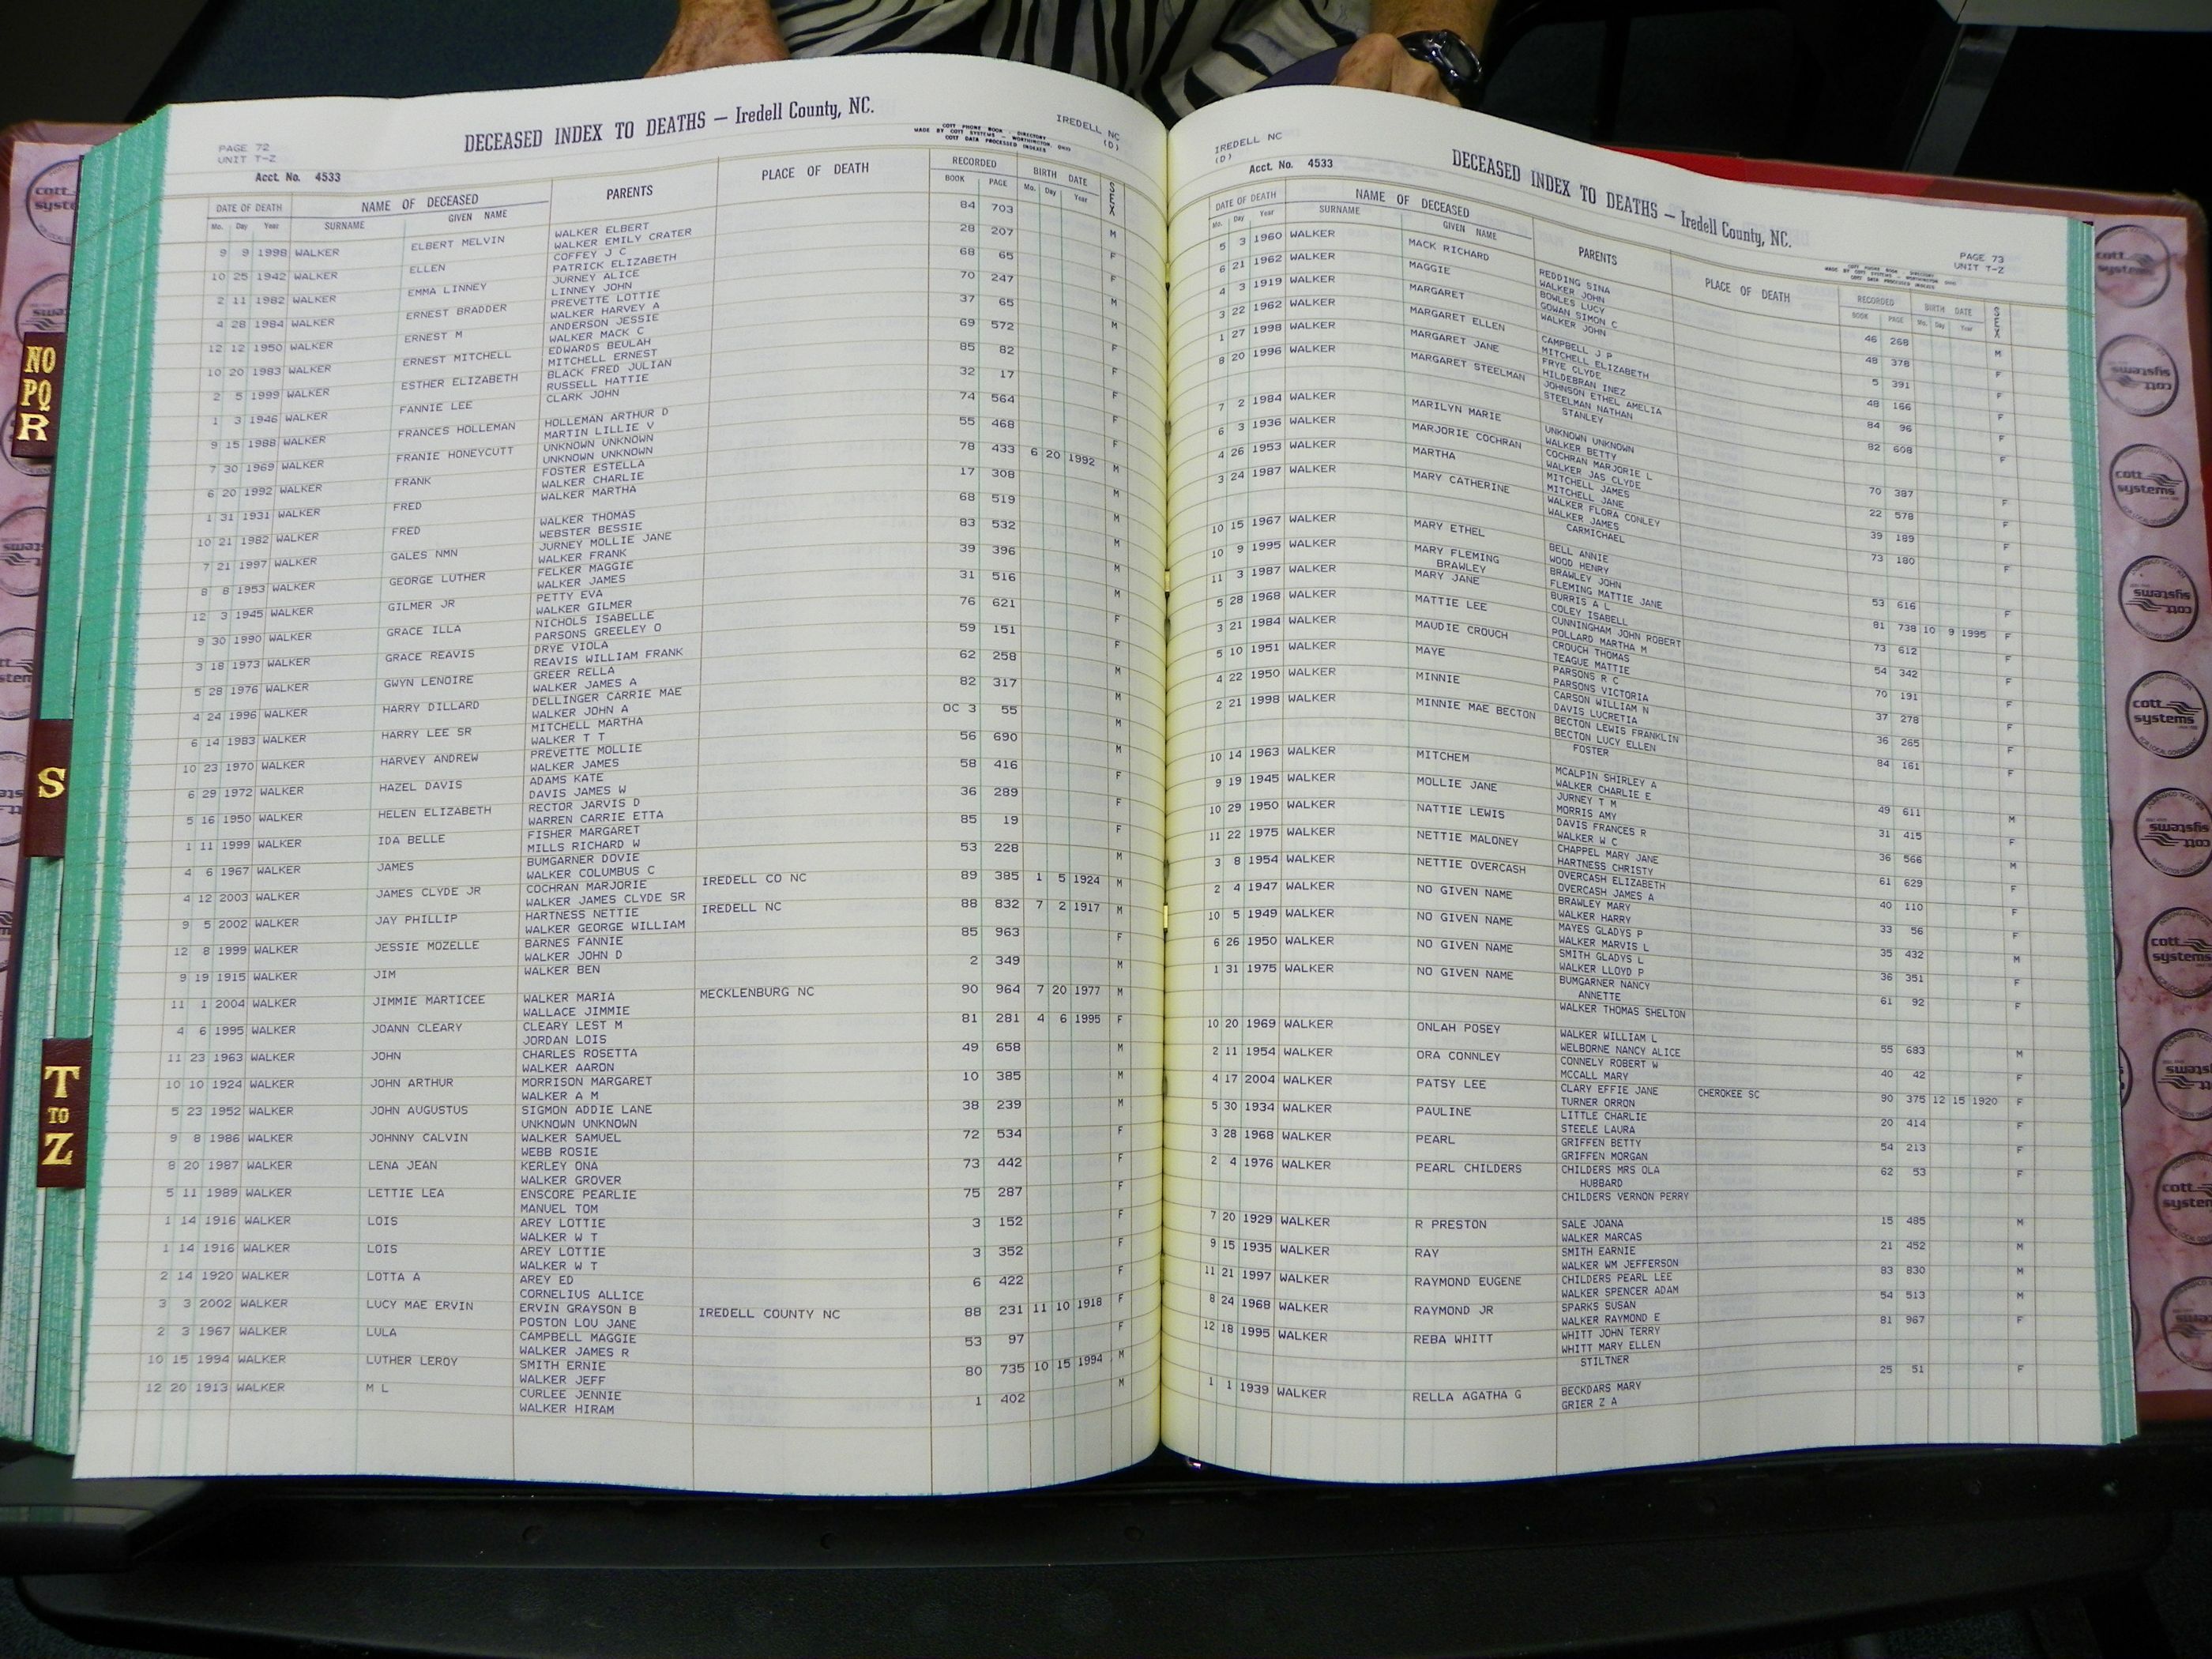 PAGE 72
UNIT T-Z
DECEASED INDEX TO DEATHS — Iredell County, NC.
COTT PHONE BOOK - DIRECTORY
MADE BY COTT SYSTEMS - WORTHINGTON, OHIO
COTT DATA PROCESSED INDEXES
IREDELL NC
(D)
Acct. No. 4533
DATE OF DEATH NAME OF DECEASED PARENTS PLACE OF DEATH RECORDED BIRTH DATE SEX
Mo. Day Year SURNAME GIVEN NAME BOOK PAGE Mo. Day Year
9 9 1998 WALKER ELBERT MELVIN WALKER ELBERT 84 703 M
WALKER EMILY CRATER
10 25 1942 WALKER ELLEN COFFEY J C 28 207 F
PATRICK ELIZABETH
2 11 1982 WALKER EMMA LINNEY JURNEY ALICE 68 65 F
LINNEY JOHN
4 28 1984 WALKER ERNEST BRADDER PREVETTE LOTTIE 70 247 M
WALKER HARVEY A
12 12 1950 WALKER ERNEST M ANDERSON JESSIE 37 65 M
WALKER MACK C
10 20 1983 WALKER ERNEST MITCHELL EDWARDS BEULAH 69 572 M
MITCHELL ERNEST
2 5 1999 WALKER ESTHER ELIZABETH BLACK FRED JULIAN 85 82 F
RUSSELL HATTIE
1 3 1946 WALKER FANNIE LEE CLARK JOHN 32 17 F
9 15 1988 WALKER FRANCES HOLLEMAN HOLLEMAN ARTHUR D 74 564 F
MARTIN LILLIE V
7 30 1969 WALKER FRANIE HONEYCUTT UNKNOWN UNKNOWN 55 468 F
UNKNOWN UNKNOWN
6 20 1992 WALKER FRANK FOSTER ESTELLA 78 433 6 20 1992 M
WALKER CHARLIE
1 31 1931 WALKER FRED WALKER MARTHA 17 308 M
10 21 1982 WALKER FRED WALKER THOMAS 68 519 M
WEBSTER BESSIE
7 21 1997 WALKER GALES NMN JURNEY MOLLIE JANE 83 532 M
WALKER FRANK
8 8 1953 WALKER GEORGE LUTHER FELKER MAGGIE 39 396 M
WALKER JAMES
12 3 1945 WALKER GILMER JR PETTY EVA 31 516 M
WALKER GILMER
9 30 1990 WALKER GRACE ILLA NICHOLS ISABELLE 76 621 F
PARSONS GREELEY O
3 18 1973 WALKER GRACE REAVIS DRYE VIOLA 59 151 F
REAVIS WILLIAM FRANK
5 28 1976 WALKER GWYN LENOIRE GREER RELLA 62 258 M
WALKER JAMES A
4 24 1996 WALKER HARRY DILLARD DELLINGER CARRIE MAE 82 317 M
WALKER JOHN A
6 14 1983 WALKER HARRY LEE SR MITCHELL MARTHA OC 3 55 M
WALKER T T
10 23 1970 WALKER HARVEY ANDREW PREVETTE MOLLIE 56 690 M
WALKER JAMES
6 29 1972 WALKER HAZEL DAVIS ADAMS KATE 58 416 F
DAVIS JAMES W
5 16 1950 WALKER HELEN ELIZABETH RECTOR JARVIS D 36 289 F
WARREN CARRIE ETTA
1 11 1999 WALKER IDA BELLE FISHER MARGARET 85 19 F
MILLS RICHARD W
4 6 1967 WALKER JAMES BUMGARNER DOVIE 53 228 M
WALKER COLUMBUS C
4 12 2003 WALKER JAMES CLYDE JR COCHRAN MARJORIE IREDELL CO NC 89 385 1 5 1924 M
WALKER JAMES CLYDE SR
9 5 2002 WALKER JAY PHILLIP HARTNESS NETTIE IREDELL NC 88 832 7 2 1917 M
WALKER GEORGE WILLIAM
12 8 1999 WALKER JESSIE MOZELLE BARNES FANNIE 85 963 F
WALKER JOHN D
9 19 1915 WALKER JIM WALKER BEN 2 349 M
11 1 2004 WALKER JIMMIE MARTICEE WALKER MARIA MECKLENBURG NC 90 964 7 20 1977 M
WALLACE JIMMIE
4 6 1995 WALKER JOANN CLEARY CLEARY LEST M 81 281 4 6 1995 F
JORDAN LOIS
11 23 1963 WALKER JOHN CHARLES ROSETTA 49 658 M
WALKER AARON
10 10 1924 WALKER JOHN ARTHUR MORRISON MARGARET 10 385 M
WALKER A M
5 23 1952 WALKER JOHN AUGUSTUS SIGMON ADDIE LANE 38 239 M
UNKNOWN UNKNOWN
9 8 1986 WALKER JOHNNY CALVIN WALKER SAMUEL 72 534 F
WEBB ROSIE
8 20 1987 WALKER LENA JEAN KERLEY ONA 73 442 F
WALKER GROVER
5 11 1989 WALKER LETTIE LEA ENSCORE PEARLIE 75 287 F
MANUEL TOM
1 14 1916 WALKER LOIS AREY LOTTIE 3 152 F
WALKER W T
1 14 1916 WALKER LOIS AREY LOTTIE 3 352 F
WALKER W T
2 14 1920 WALKER LOTTA A AREY ED 6 422 F
CORNELIUS ALLICE
3 3 2002 WALKER LUCY MAE ERVIN ERVIN GRAYSON B IREDELL COUNTY NC 88 231 11 10 1918 F
POSTON LOU JANE
2 3 1967 WALKER LULA CAMPBELL MAGGIE 53 97 F
WALKER JAMES R
10 15 1994 WALKER LUTHER LEROY SMITH ERNIE 80 735 10 15 1994 M
WALKER JEFF
12 20 1913 WALKER M L CURLEE JENNIE 1 402 M
WALKER HIRAM
IREDELL NC
(D)
DECEASED INDEX TO DEATHS — Iredell County, NC.
PAGE 73
UNIT T-Z
Acct. No. 4533
COTT PHONE BOOK - DIRECTORY
MADE BY COTT SYSTEMS - WORTHINGTON, OHIO
COTT DATA PROCESSED INDEXES
DATE OF DEATH NAME OF DECEASED PARENTS PLACE OF DEATH RECORDED BIRTH DATE SEX
Mo. Day Year SURNAME GIVEN NAME BOOK PAGE Mo. Day Year
5 3 1960 WALKER MACK RICHARD REDDING SINA 46 268 M
WALKER JOHN
6 21 1962 WALKER MAGGIE BOWLES LUCY 48 378 F
GOWAN SIMON C
4 3 1919 WALKER MARGARET WALKER JOHN 5 391 F
3 22 1962 WALKER MARGARET ELLEN CAMPBELL J P 48 166 F
MITCHELL ELIZABETH
1 27 1998 WALKER MARGARET JANE FRYE CLYDE 84 96 F
HILDEBRAN INEZ
8 20 1996 WALKER MARGARET STEELMAN JOHNSON ETHEL AMELIA 82 608 F
STEELMAN NATHAN
STANLEY
7 2 1984 WALKER MARILYN MARIE UNKNOWN UNKNOWN 70 387 F
WALKER BETTY
6 3 1936 WALKER MARJORIE COCHRAN COCHRAN MARJORIE L 22 578 F
WALKER JAS CLYDE
4 26 1953 WALKER MARTHA MITCHELL JAMES 39 189 F
MITCHELL JANE
3 24 1987 WALKER MARY CATHERINE WALKER FLORA CONLEY 73 180 F
WALKER JAMES
CARMICHAEL
10 15 1967 WALKER MARY ETHEL BELL ANNIE 53 616 F
WOOD HENRY
10 9 1995 WALKER MARY FLEMING BRAWLEY JOHN 81 738 10 9 1995 F
BRAWLEY FLEMING MATTIE JANE
11 3 1987 WALKER MARY JANE BURRIS A L 73 612 F
COLEY ISABELL
5 28 1968 WALKER MATTIE LEE CUNNINGHAM JOHN ROBERT 54 342 F
POLLARD MARTHA M
3 21 1984 WALKER MAUDIE CROUCH CROUCH THOMAS 70 191 F
TEAGUE MATTIE
5 10 1951 WALKER MAYE PARSONS R C 37 278 F
PARSONS VICTORIA
4 22 1950 WALKER MINNIE CARSON WILLIAM N 36 265 F
DAVIS LUCRETIA
2 21 1998 WALKER MINNIE MAE BECTON BECTON LEWIS FRANKLIN 84 161 F
BECTON LUCY ELLEN
FOSTER
10 14 1963 WALKER MITCHEM MCALPIN SHIRLEY A 49 611 M
WALKER CHARLIE E
9 19 1945 WALKER MOLLIE JANE JURNEY T M 31 415 F
MORRIS AMY
10 29 1950 WALKER NATTIE LEWIS DAVIS FRANCES R 36 566 M
WALKER W C
11 22 1975 WALKER NETTIE MALONEY CHAPPEL MARY JANE 61 629 F
HARTNESS CHRISTY
3 8 1954 WALKER NETTIE OVERCASH OVERCASH ELIZABETH 40 110 F
OVERCASH JAMES A
2 4 1947 WALKER NO GIVEN NAME BRAWLEY MARY 33 56 F
WALKER HARRY
10 5 1949 WALKER NO GIVEN NAME MAYES GLADYS P 35 432 M
WALKER MARVIS L
6 26 1950 WALKER NO GIVEN NAME SMITH GLADYS L 36 351 F
WALKER LLOYD P
1 31 1975 WALKER NO GIVEN NAME BUMGARNER NANCY 61 92 F
ANNETTE
WALKER THOMAS SHELTON
10 20 1969 WALKER ONLAH POSEY WALKER WILLIAM L 55 683 M
WELBORNE NANCY ALICE
2 11 1954 WALKER ORA CONNLEY CONNELY ROBERT W 40 42 F
MCCALL MARY
4 17 2004 WALKER PATSY LEE CLARY EFFIE JANE CHEROKEE SC 90 375 12 15 1920 F
TURNER ORRON
5 30 1934 WALKER PAULINE LITTLE CHARLIE 20 414 F
STEELE LAURA
3 28 1968 WALKER PEARL GRIFFEN BETTY 54 213 F
GRIFFEN MORGAN
2 4 1976 WALKER PEARL CHILDERS CHILDERS MRS OLA 62 53 F
HUBBARD
CHILDERS VERNON PERRY
7 20 1929 WALKER R PRESTON SALE JOANA 15 485 M
WALKER MARCAS
9 15 1935 WALKER RAY SMITH EARNIE 21 452 M
WALKER WM JEFFERSON
11 21 1997 WALKER RAYMOND EUGENE CHILDERS PEARL LEE 83 830 M
WALKER SPENCER ADAM
8 24 1968 WALKER RAYMOND JR SPARKS SUSAN 54 513 M
WALKER RAYMOND E
12 18 1995 WALKER REBA WHITT WHITT JOHN TERRY 81 967 F
WHITT MARY ELLEN
STILTNER
1 1 1939 WALKER RELLA AGATHA G BECKDARS MARY 25 51 F
GRIER Z A
NO
PQ
R
S
T
TO
Z
cott systems
FOR LOCAL GOVERNMENT